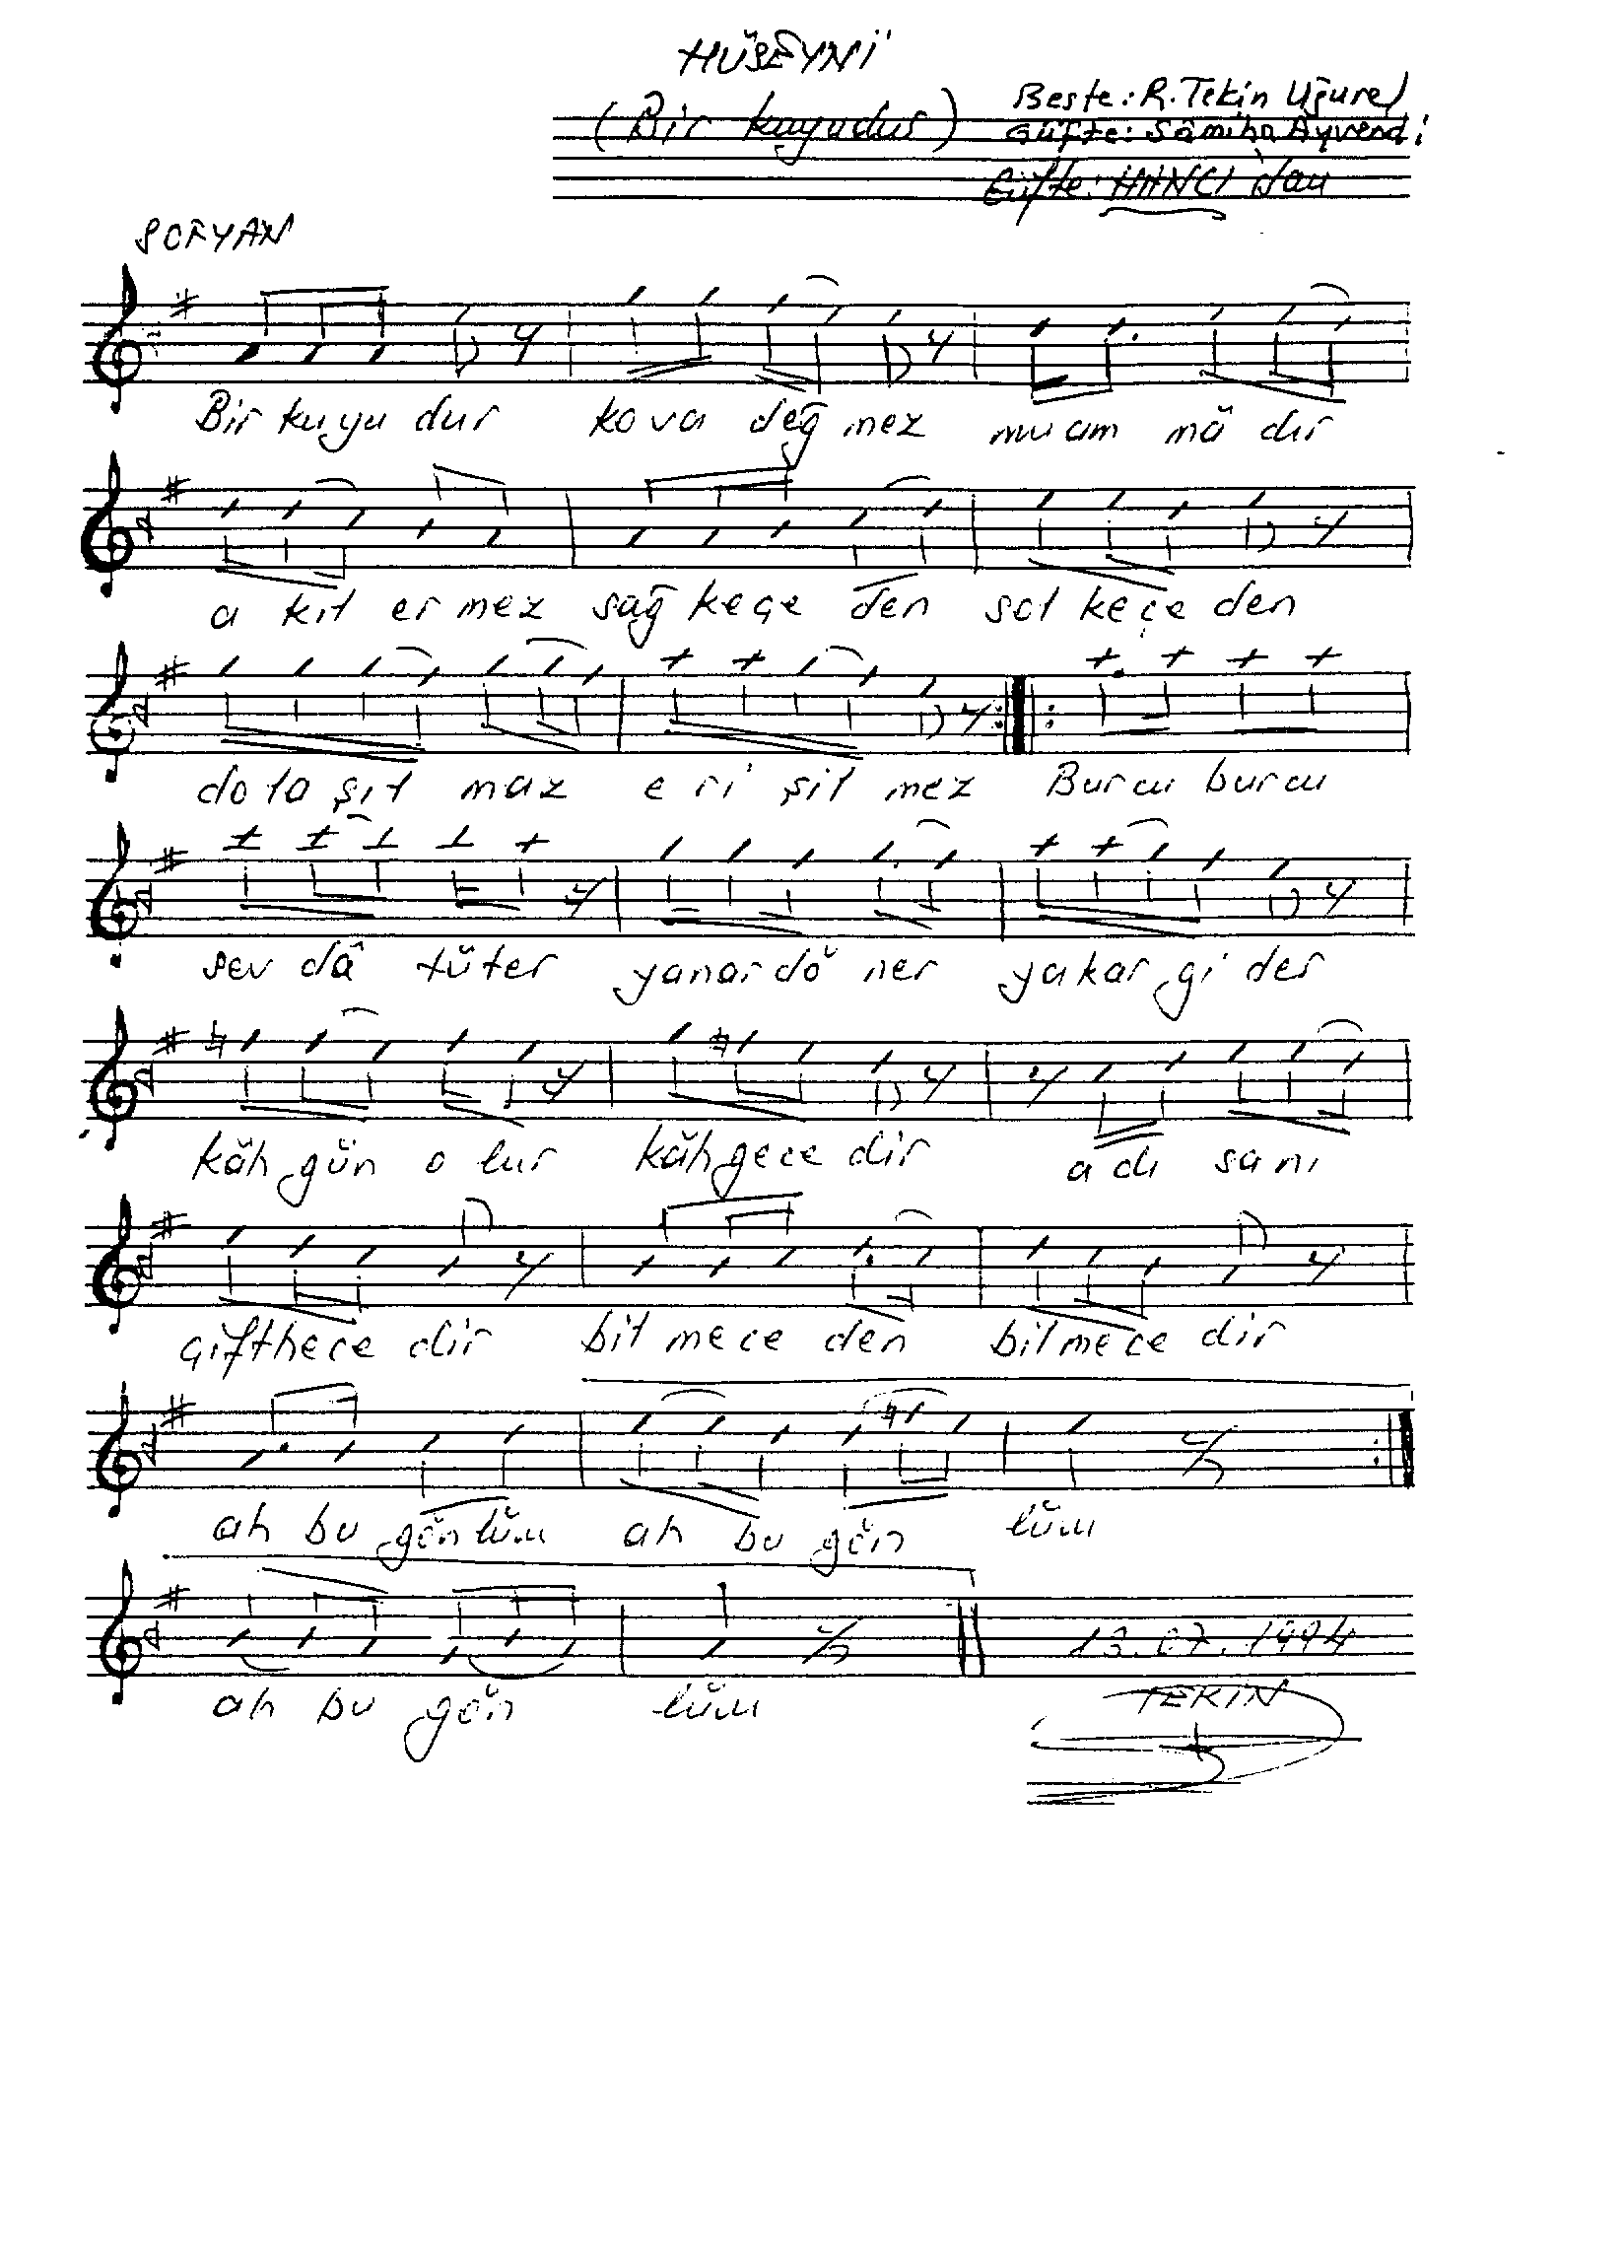 HÜSEYNİ
(Bir kuyudur)
Beste: R. Tekin Uğurel
Güfte: Sâmiha Ayverdi
Güfte: HANCI'dan
SOFYAN
Bir kuyu dur kova değ mez muam mâ dır
a kıl er mez sağ keçe den sol keçe den
dola şıl maz e ri şil mez Burcu burcu
sev dâ tüter yanar dö ner yakar gi der
kâh gün o lur kâh gece dir a dı sanı
çift hece dir bil mece den bilmece dir
ah bu gönlüm ah bu gön lüm
ah bu gön lüm
13.07.1994
TEKİN